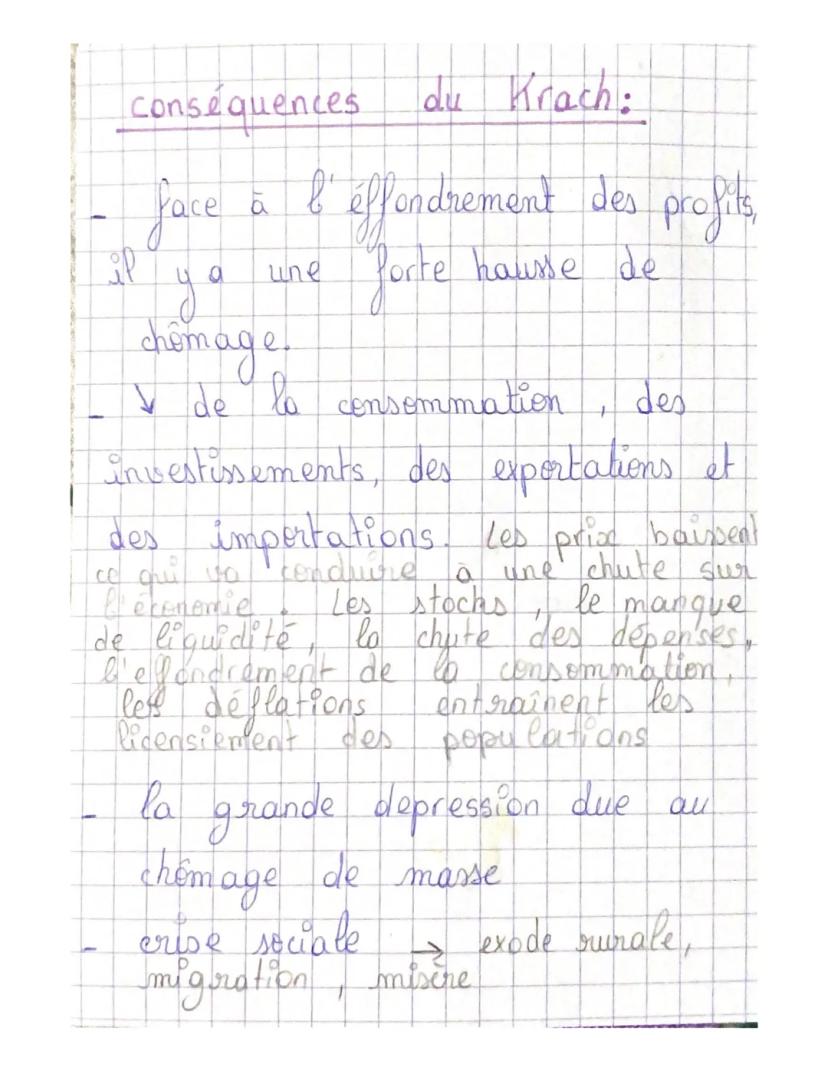 conséquences du Krach:
- face à l'éffondrement des profits,
il y a une forte hausse de
chômage.
- ↓ de la consommation, des
investissements, des exportations et
des importations. Les prix baissent
ce qui va conduire à une chute sur
l'économie. Les stocks, le manque
de liquidité, la chute des dépenses,
l'effondrement de la consommation,
les déflations entraînent les
licensiement des populations
- la grande depression due au
chômage de masse
- crise sociale → exode rurale,
migration, misère